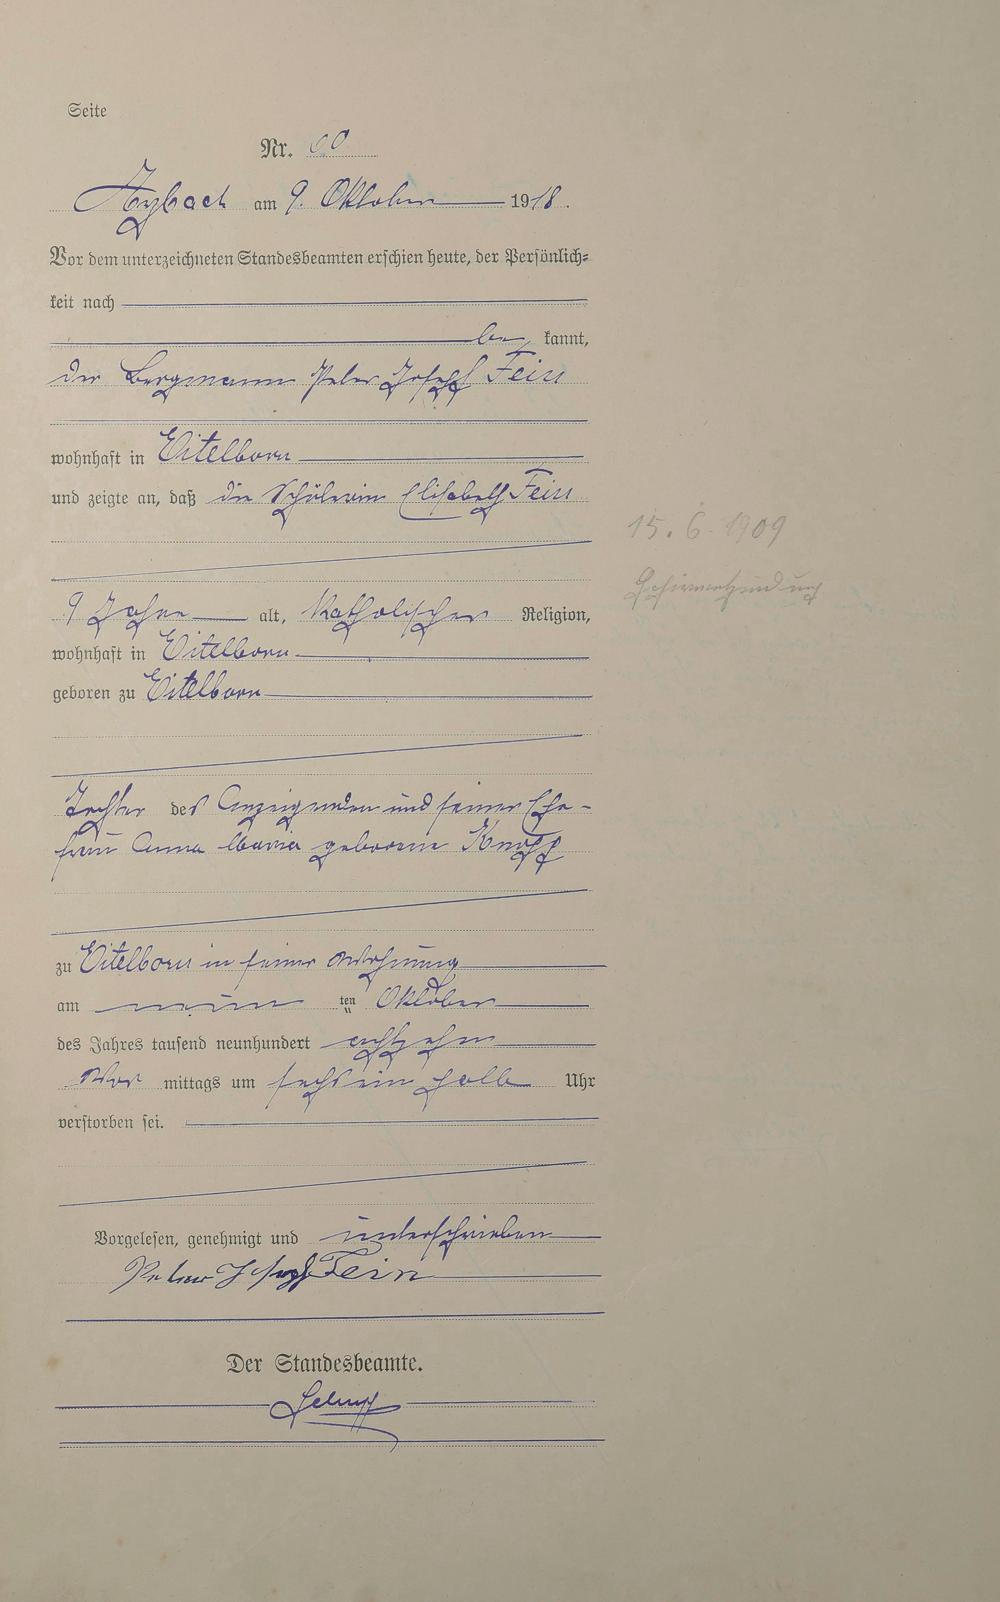 Seite
Nr. 60
Arzbach am 9. Oktober 1918.
Vor dem unterzeichneten Standesbeamten erschien heute, der Persönlich=
keit nach
be kannt,
der Bergmann Peter Joseph Fein
wohnhaft in Eitelborn
und zeigte an, daß die Schülerin Elisabeth Fein
15. 6. 1909
Gehirnentzündung
9 Jahre alt, katholischer Religion,
wohnhaft in Eitelborn
geboren zu Eitelborn
Tochter des Anzeigenden und seiner Ehe-
frau Anna Maria geborene Knopp
zu Eitelborn in seiner Wohnung
am neun ten Oktober
des Jahres tausend neunhundert achtzehn
Vor mittags um sechsein halb Uhr
verstorben sei.
Vorgelesen, genehmigt und unterschrieben
Peter Joseph Fein
Der Standesbeamte.